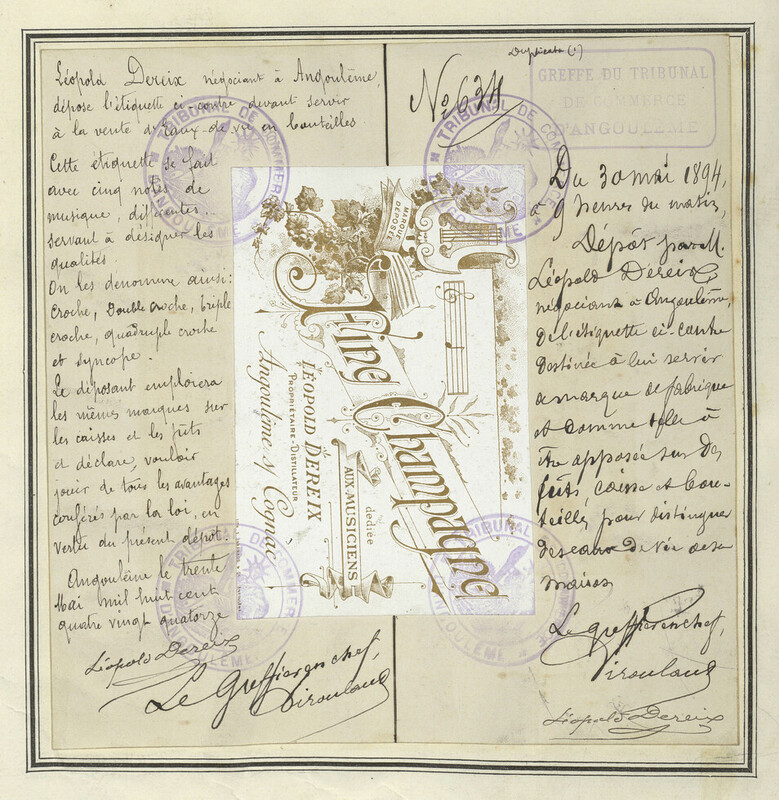 Léopold Dereix négociant à Angoulême,
dépose l'étiquette ci-contre devant servir
à la vente d'Eaux-de-vie en bouteilles
Cette étiquette se fait
avec cinq notes de
musique, différentes.
servant à désigner les
qualités.
On les dénomme ainsi:
Croche, Double croche, triple
croche, quadruple croche
et syncope.
Le déposant emploiera
les mêmes marques sur
les caisses et les fûts
et déclare, vouloir
jouir de tous les avantages
conférés par la loi, en
vertu du présent dépôt.
Angoulême le trente
Mai mil huit cent
quatre vingt quatorze
Léopold Dereix
Le Greffier en chef,
Duplicata (1)
No 634
GREFFE DU TRIBUNAL
DE COMMERCE
D'ANGOULÊME
Du 30 mai 1894,
à 9 heures du matin,
Dépôt par M.
Léopold Dereix
négociant à Angoulême,
de l'étiquette ci-contre
destinée à lui servir
de marque de fabrique
et comme telle à
être apposée sur des
fûts, caisse et bou-
teilles, pour distinguer
des eaux de vie de sa
maison
Le Greffier en chef,
Léopold Dereix
MARQUE
DÉPOSÉE
Fine Champagne
dediée
AUX MUSICIENS
LÉOPOLD DEREIX
PROPRIÉTAIRE-DISTILLATEUR
Angoulême s/ Cognac
TRIBUNAL DE COMMERCE
D'ANGOULÊME
TRIBUNAL DE COMMERCE
D'ANGOULÊME
TRIBUNAL DE COMMERCE
D'ANGOULÊME
TRIBUNAL DE COMMERCE
D'ANGOULÊME